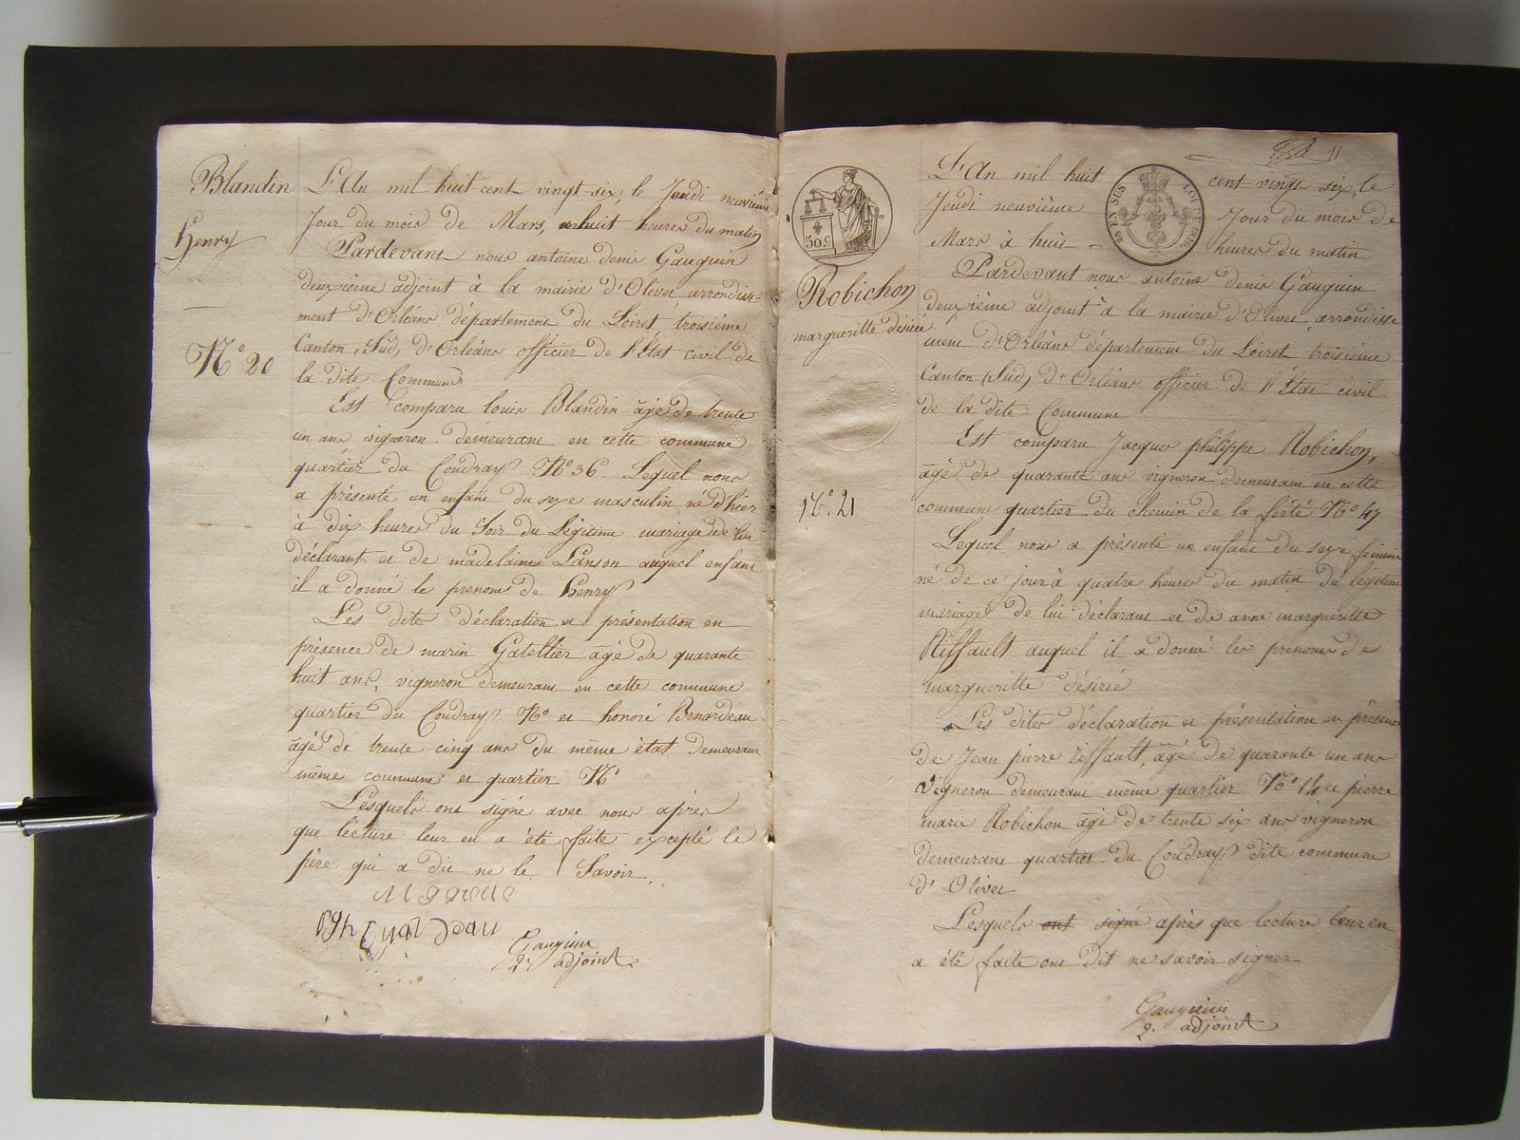 Blandin
Henry
N° 20
L'An mil huit cent vingt six, le Jeudi neuvième
Jour du mois de Mars, huit heures du matin
Pardevant nous antoine denis Gauguin
deuxième adjoint à la mairie d'Olivet arrondisse-
ment d'Orléans département du Loiret, troisième
Canton, Sud, d'Orléans officier de l'État civil de
la dite Commune
Est comparu louis Blandin âgé de trente
un ans vigneron demeurant en cette commune
quartier du Coudray N° 36 Lequel nous
a présenté un enfant du sexe masculin né d'hier
à dix heures du Soir du Légitime mariage de lui
déclarant et de madelaine Lanson auquel enfant
il a donné le prenom de Henry
Les dites déclaration et présentation en
présence de marin Gatellier âgé de quarante
huit ans, vigneron demeurant en cette commune
quartier du Coudray N° et honoré Benardeau
âgé de trente cinq ans du même état demeurant
même commune et quartier N°
Lesquels ont signé avec nous après
que lecture leur en a été faite excepté le
père qui a dit ne le Savoir.
Gauguin
2e adjoint
11
50c
Robichon
margueritte désirée
N° 21
L'An mil huit cent vingt six, le
Jeudi neuvième Jour du mois de
Mars à huit heures du matin
Pardevant nous antoine denis Gauguin
deuxième adjoint à la mairie d'Olivet arrondisse
ment d'Orléans département du Loiret troisième
Canton (Sud) d'Orléans officier de l'État civil
de la dite Commune
Est comparu Jacques philippe Robichon,
âgé de quarante ans vigneron demeurant en cette
commune quartier du chemin de la ferté N° 47
Lequel nous a présenté un enfant du sexe féminin
né de ce jour à quatre heures du matin du légitime
mariage de lui déclarant et de anne margueritte
Riffault auquel il a donné les prenoms de
margueritte désirée
Les dites déclaration et présentation en présence
de Jean pierre Riffault, âgé de quarante un ans
Vigneron demeurant même quartier N° 14 et pierre
marie Robichon âgé de trente six ans vigneron
demeurant quartier du Coudray dite commune
d'Olivet
Lesquels ont signé après que lecture leur en
a été faite ont dit ne savoir signer
Gauguin
2e adjoint